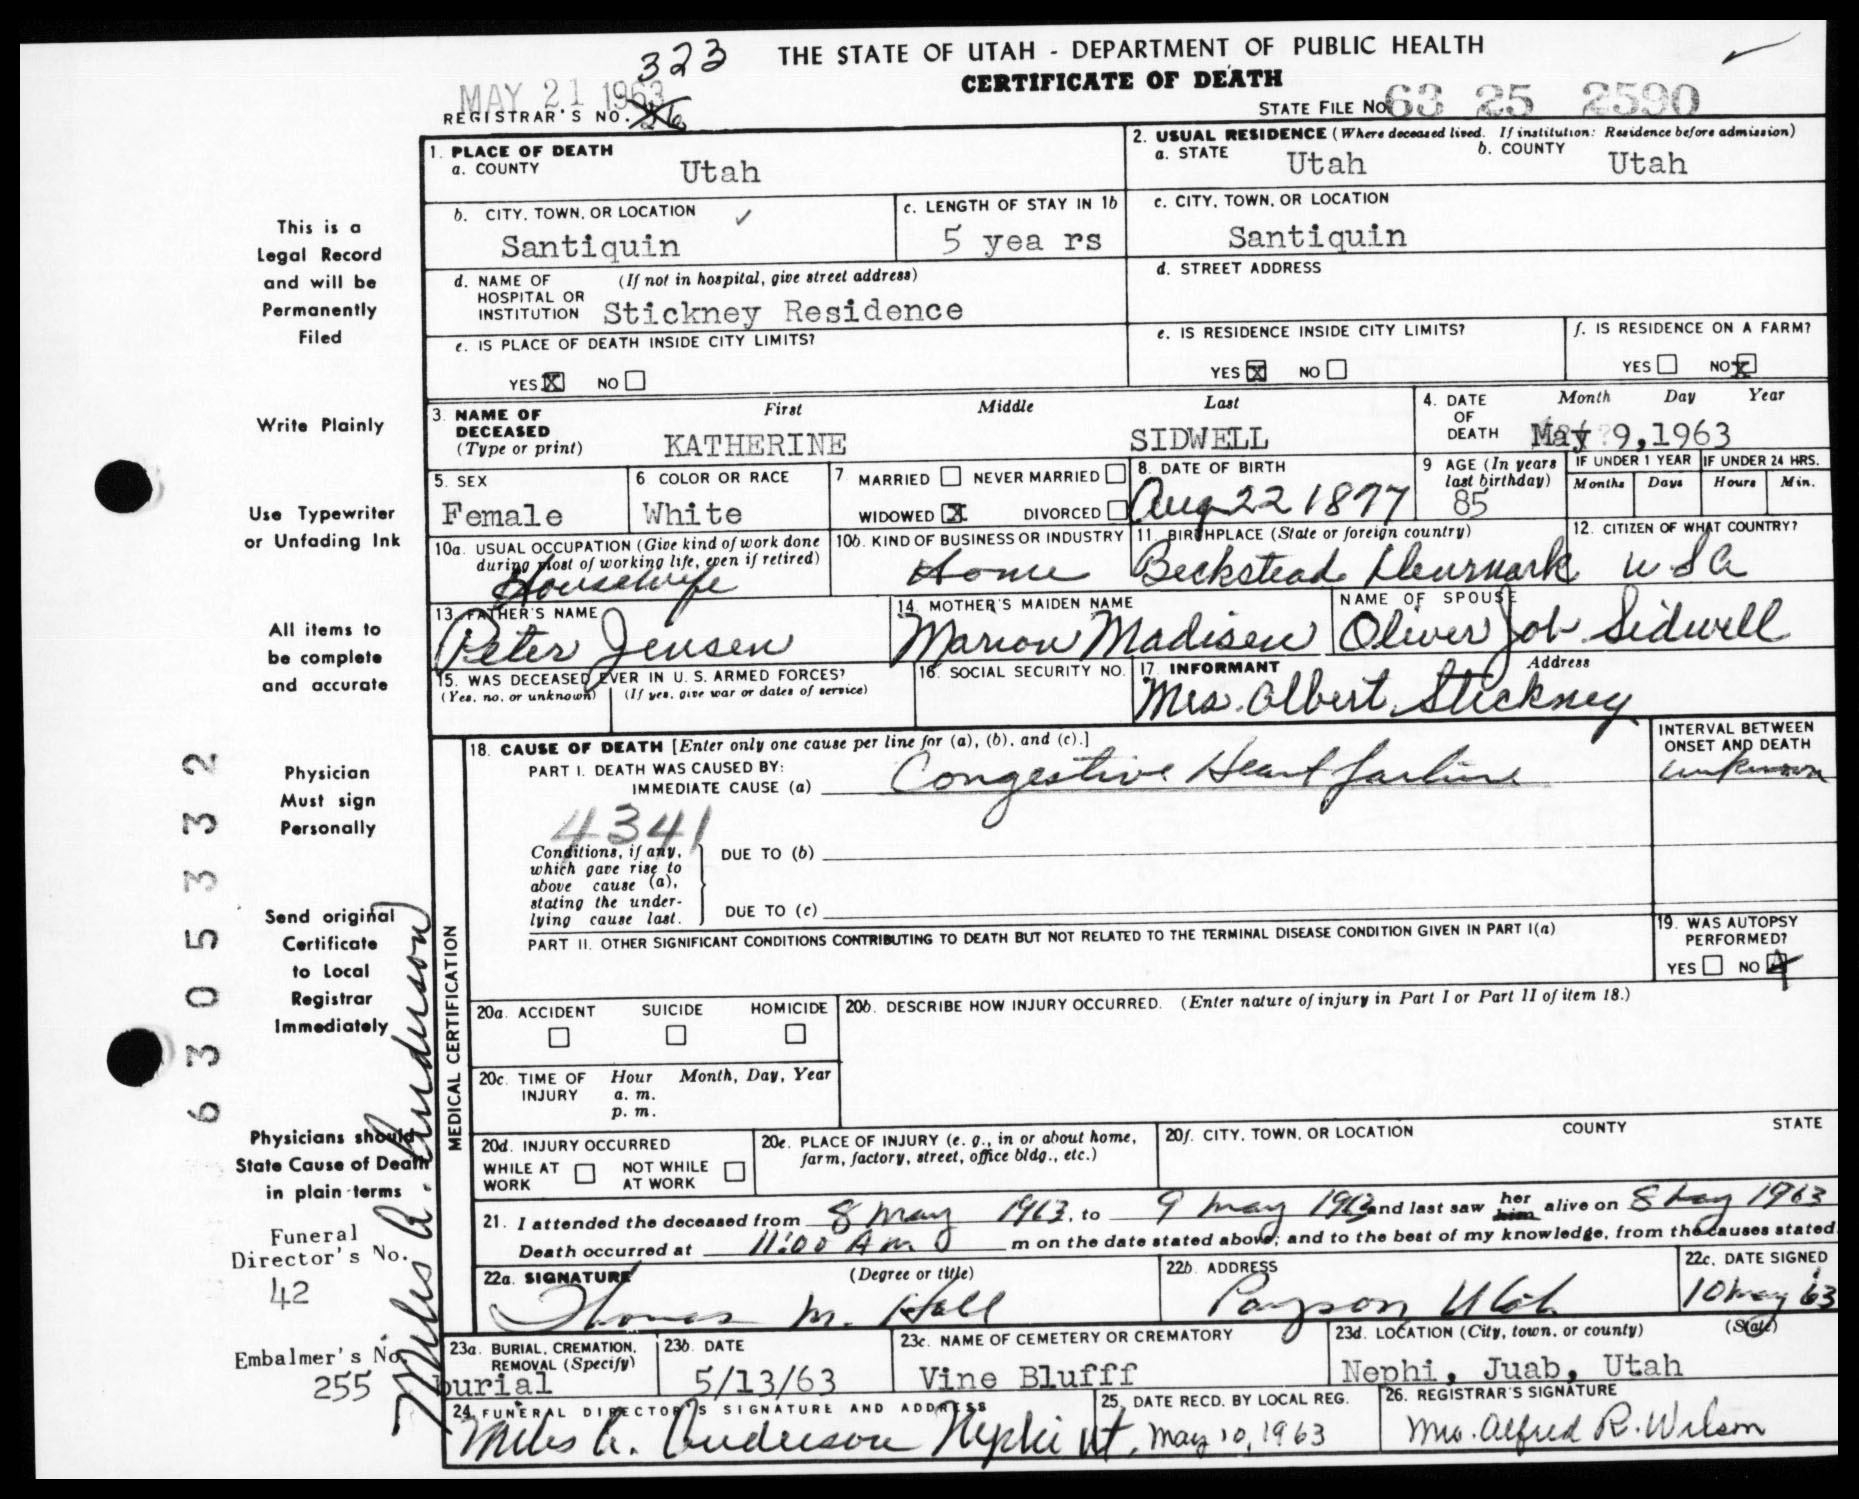 323
THE STATE OF UTAH - DEPARTMENT OF PUBLIC HEALTH
CERTIFICATE OF DEATH
MAY 21 1963
REGISTRAR'S NO.
STATE FILE NO. 63 25 2590
1. PLACE OF DEATH
a. COUNTY Utah
2. USUAL RESIDENCE (Where deceased lived. If institution: Residence before admission)
a. STATE Utah b. COUNTY Utah
b. CITY, TOWN, OR LOCATION Santiquin
c. LENGTH OF STAY IN 1b 5 yea rs
c. CITY, TOWN, OR LOCATION Santiquin
d. NAME OF HOSPITAL OR INSTITUTION (If not in hospital, give street address) Stickney Residence
d. STREET ADDRESS
e. IS PLACE OF DEATH INSIDE CITY LIMITS?
YES X NO
e. IS RESIDENCE INSIDE CITY LIMITS?
YES X NO
f. IS RESIDENCE ON A FARM?
YES NO X
3. NAME OF DECEASED (Type or print)
First Middle Last
KATHERINE SIDWELL
4. DATE OF DEATH Month Day Year
May 9,1963
5. SEX
Female
6. COLOR OR RACE
White
7. MARRIED NEVER MARRIED
WIDOWED X DIVORCED
8. DATE OF BIRTH
Aug 22 1877
9 AGE (In years last birthday)
85
IF UNDER 1 YEAR
Months Days
IF UNDER 24 HRS.
Hours Min.
10a. USUAL OCCUPATION (Give kind of work done during most of working life, even if retired)
Housewife
10b. KIND OF BUSINESS OR INDUSTRY
Home
11. BIRTHPLACE (State or foreign country)
Beckstead Denmark
12. CITIZEN OF WHAT COUNTRY?
USA
13. FATHER'S NAME
Peter Jensen
14. MOTHER'S MAIDEN NAME
Marion Madisen
NAME OF SPOUSE
Oliver Job Sidwell
15. WAS DECEASED EVER IN U.S. ARMED FORCES?
(Yes, no, or unknown) (If yes, give war or dates of service)
16. SOCIAL SECURITY NO.
17. INFORMANT Address
Mrs. Albert Stickney
MEDICAL CERTIFICATION
18. CAUSE OF DEATH [Enter only one cause per line for (a), (b), and (c).]
PART I. DEATH WAS CAUSED BY:
IMMEDIATE CAUSE (a) Congestive Heart failure
INTERVAL BETWEEN ONSET AND DEATH
unknown
4341
Conditions, if any, which gave rise to above cause (a), stating the underlying cause last.
DUE TO (b)
DUE TO (c)
PART II. OTHER SIGNIFICANT CONDITIONS CONTRIBUTING TO DEATH BUT NOT RELATED TO THE TERMINAL DISEASE CONDITION GIVEN IN PART I(a)
19. WAS AUTOPSY PERFORMED?
YES NO
20a. ACCIDENT SUICIDE HOMICIDE
20b. DESCRIBE HOW INJURY OCCURRED. (Enter nature of injury in Part I or Part II of item 18.)
20c. TIME OF INJURY Hour Month, Day, Year
a. m.
p. m.
20d. INJURY OCCURRED
WHILE AT WORK NOT WHILE AT WORK
20e. PLACE OF INJURY (e. g., in or about home, farm, factory, street, office bldg., etc.)
20f. CITY, TOWN, OR LOCATION COUNTY STATE
21. I attended the deceased from 8 May 1963, to 9 May 1963 and last saw her him alive on 8 May 1963
Death occurred at 11:00 A m m on the date stated above; and to the best of my knowledge, from the causes stated.
22a. SIGNATURE (Degree or title)
Thomas M. Hall
22b. ADDRESS
Payson Utah
22c. DATE SIGNED
10 May 63
23a. BURIAL, CREMATION, REMOVAL (Specify)
burial
23b. DATE
5/13/63
23c. NAME OF CEMETERY OR CREMATORY
Vine Blufff
23d. LOCATION (City, town, or county) (State)
Nephi, Juab, Utah
24. FUNERAL DIRECTOR'S SIGNATURE AND ADDRESS
Miles A. Anderson Nephi Ut.
25. DATE RECD. BY LOCAL REG.
May 10, 1963
26. REGISTRAR'S SIGNATURE
Mrs. Alfred R. Wilson
This is a
Legal Record
and will be
Permanently
Filed
Write Plainly
Use Typewriter
or Unfading Ink
All items to
be complete
and accurate
Physician
Must sign
Personally
Send original
Certificate
to Local
Registrar
Immediately
Physicians should
State Cause of Death
in plain terms
Funeral
Director's No.
42
Embalmer's No.
255
Miles A. Anderson
6 3 0 5 3 3 2